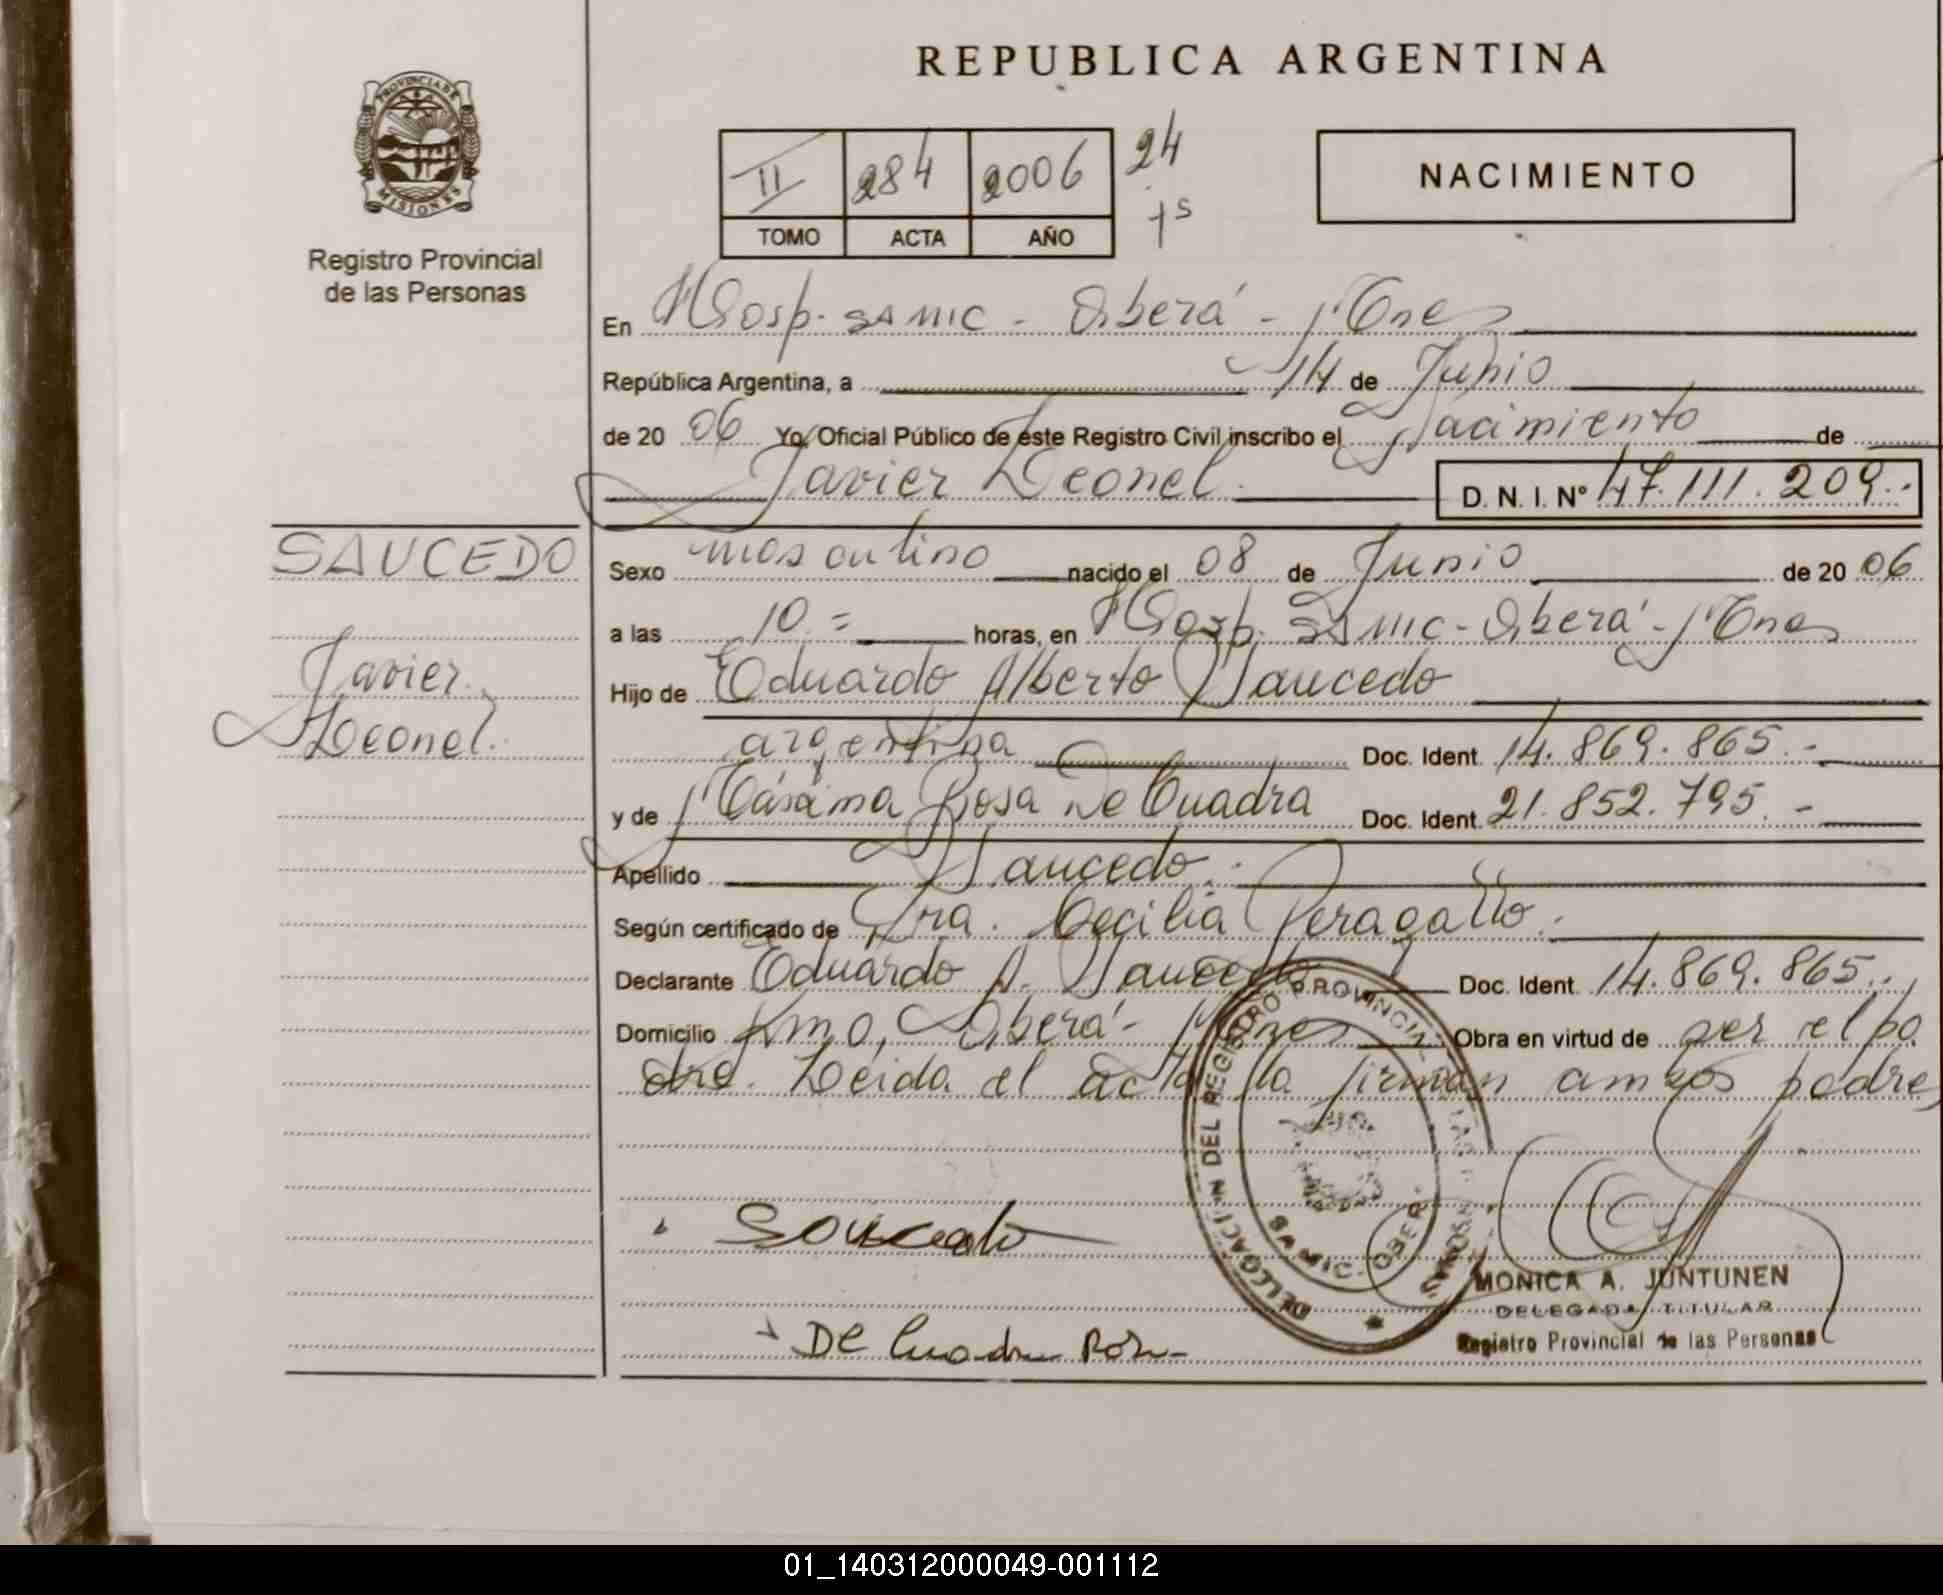 REPUBLICA ARGENTINA
PROVINCIA DE
MISIONES
Registro Provincial
de las Personas
II 284 2006 24
TOMO ACTA AÑO
NACIMIENTO
En Hosp. SAMIC - Oberá - Mnes
República Argentina, a 14 de Junio
de 20 06 Yo, Oficial Público de este Registro Civil inscribo el Nacimiento de
Javier Leonel. D. N. I. Nº 47.111.209.-
SAUCEDO
Javier
Leonel.
Sexo masculino nacido el 08 de Junio de 20 06
a las 10.= horas, en Hosp. SAMIC - Oberá - Mnes
Hijo de Eduardo Alberto Saucedo
argentina Doc. Ident. 14.869.865.-
y de Rosa De Cuadra Doc. Ident. 21.852.795.-
Apellido Saucedo.-
Según certificado de Dra. Cecilia Peragallo.
Declarante Eduardo A. Saucedo Doc. Ident. 14.869.865.-
Domicilio Oberá - Mnes Obra en virtud de ser el pa
dre. Leida el acta la firman ambos padres
Saucedo
De Cuadra Rosa
MONICA A. JUNTUNEN
DELEGADA TITULAR
Registro Provincial de las Personas
01_140312000049-001112